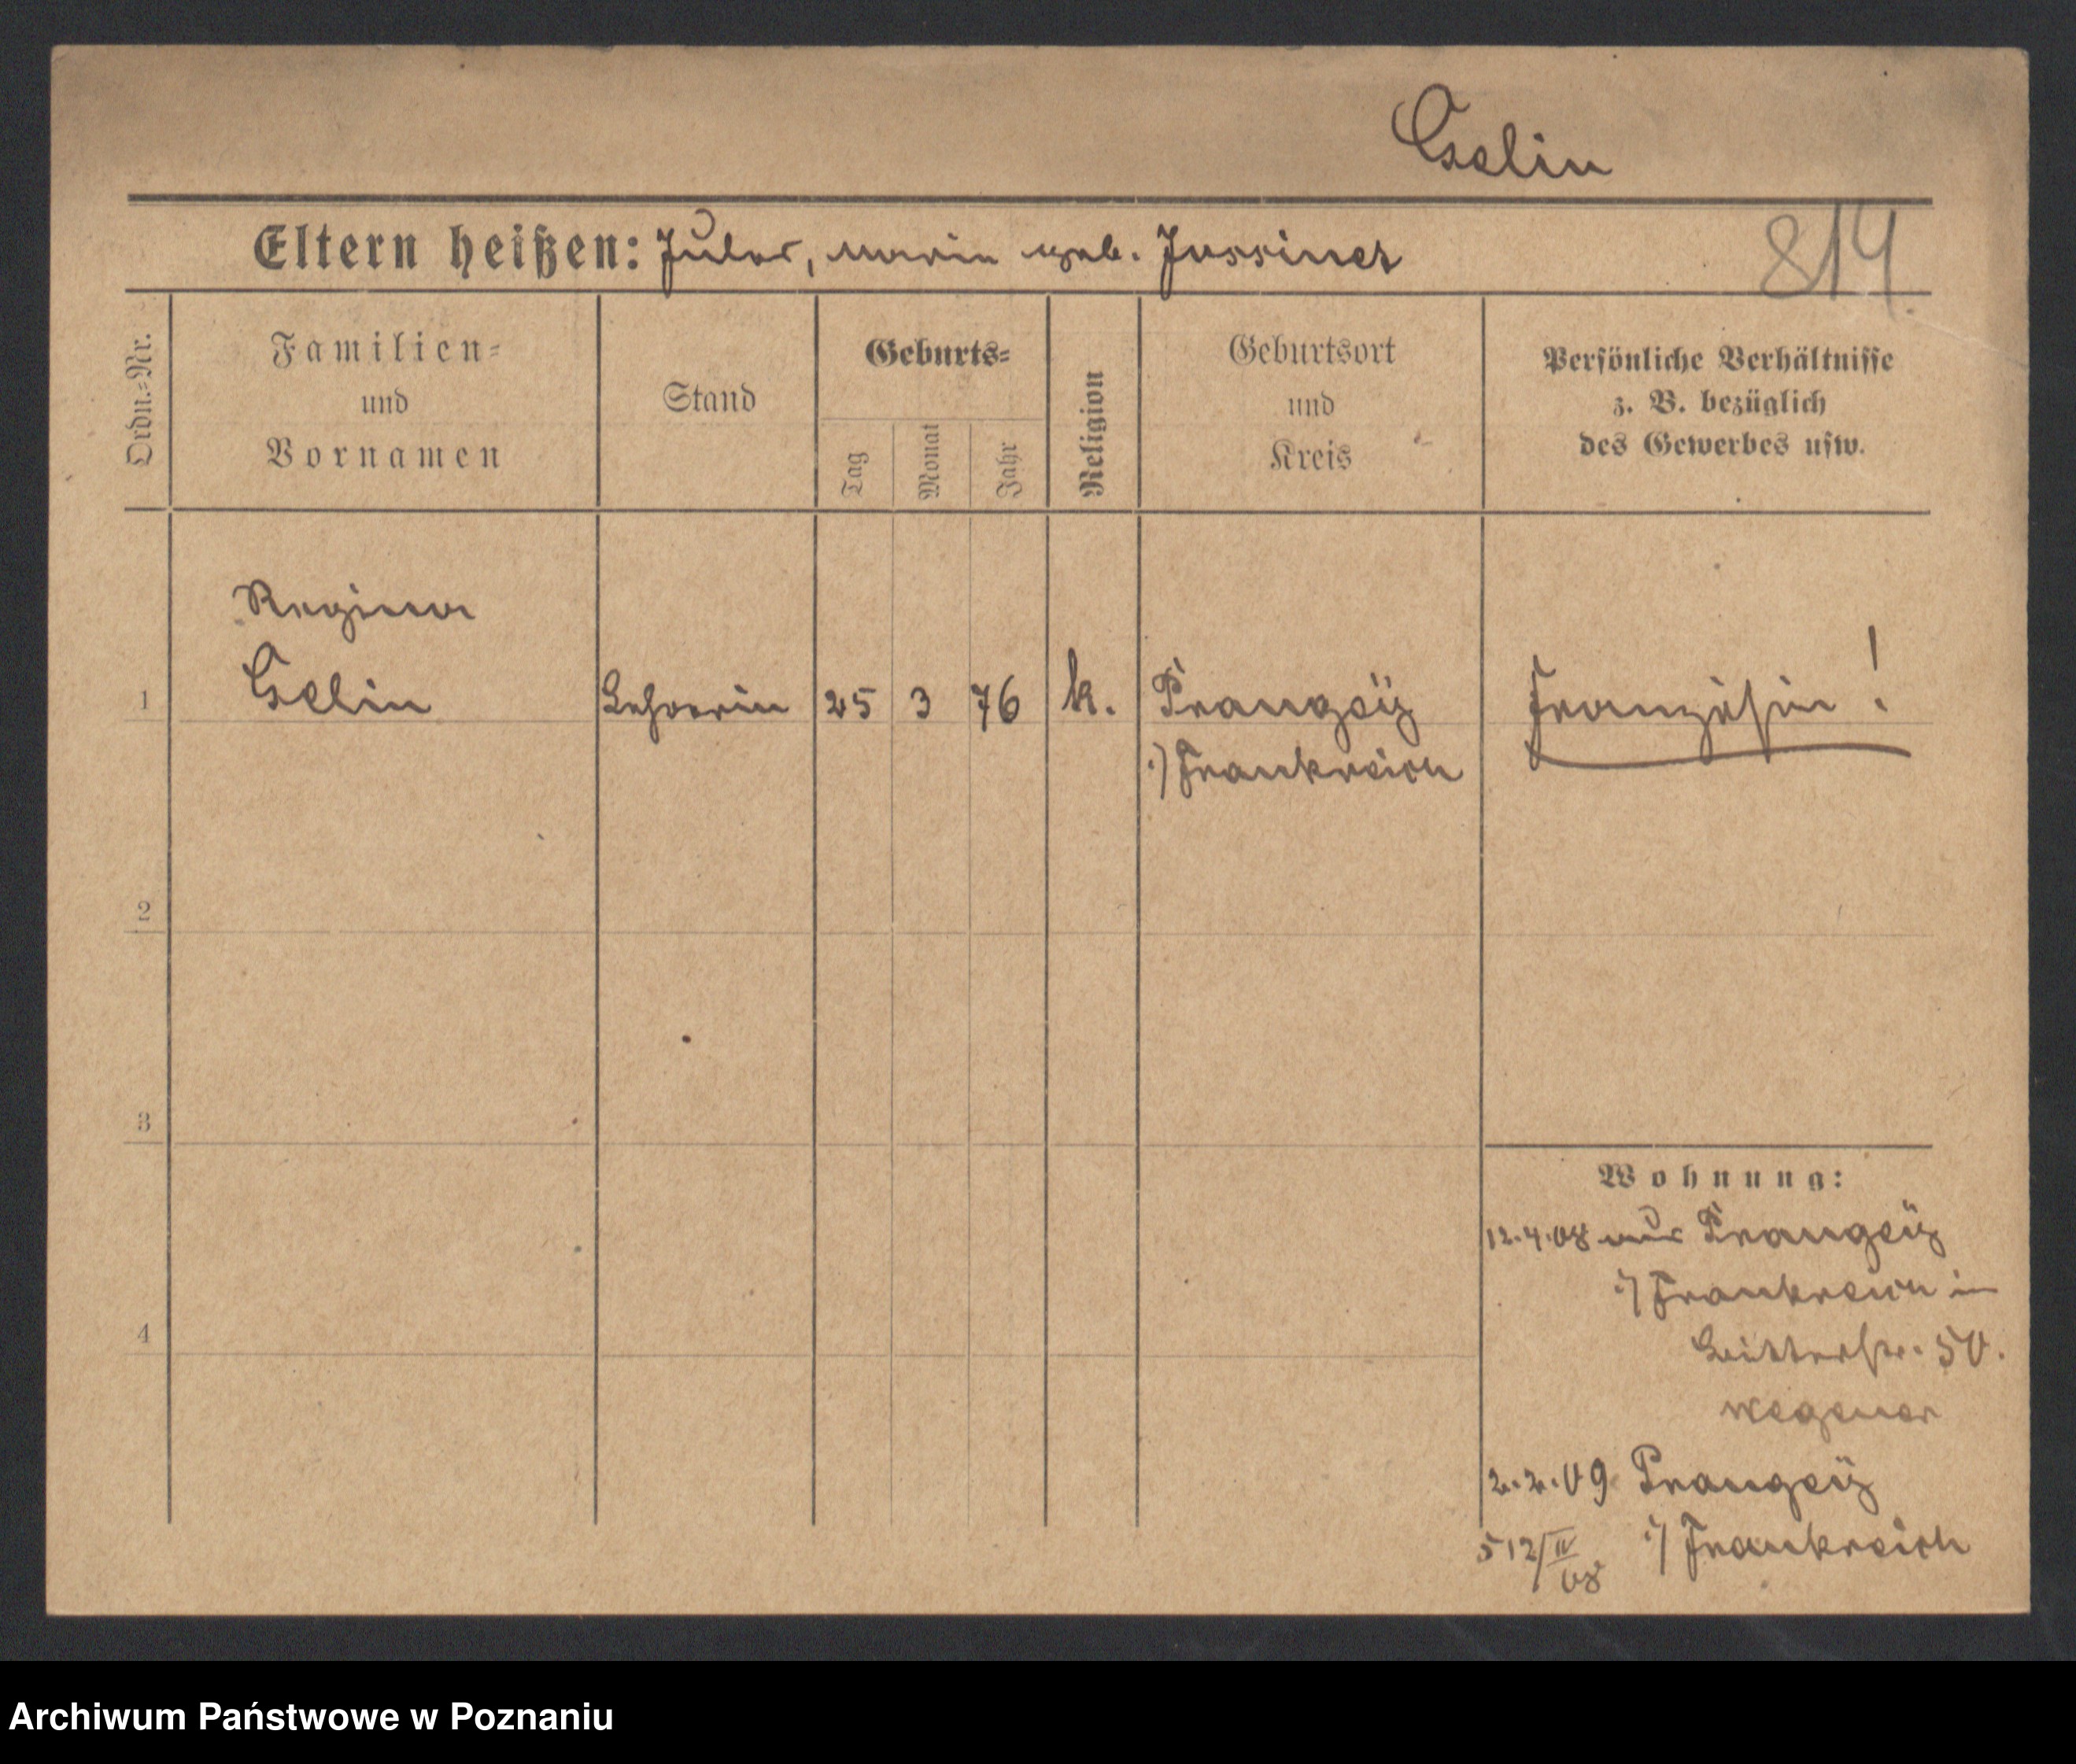 Gelin
Eltern heißen: Jules, Marie geb. Jussiner
814
Ordn.=Nr.
Familien=
und
Vornamen
Stand
Geburts=
Tag
Monat
Jahr
Religion
Geburtsort
und
Kreis
Persönliche Verhältnisse
z. B. bezüglich
des Gewerbes usw.
Regina
1 Gelin Lehrerin 25 3 76 k. Prangey Französin!
i/ Frankreich
2
3
Wohnung:
12.4.08 aus Prangey
i/ Frankreich in
4
50.
Wegener
2.2.09 Prangey
512/IV 08 i/ Frankreich
Archiwum Państwowe w Poznaniu